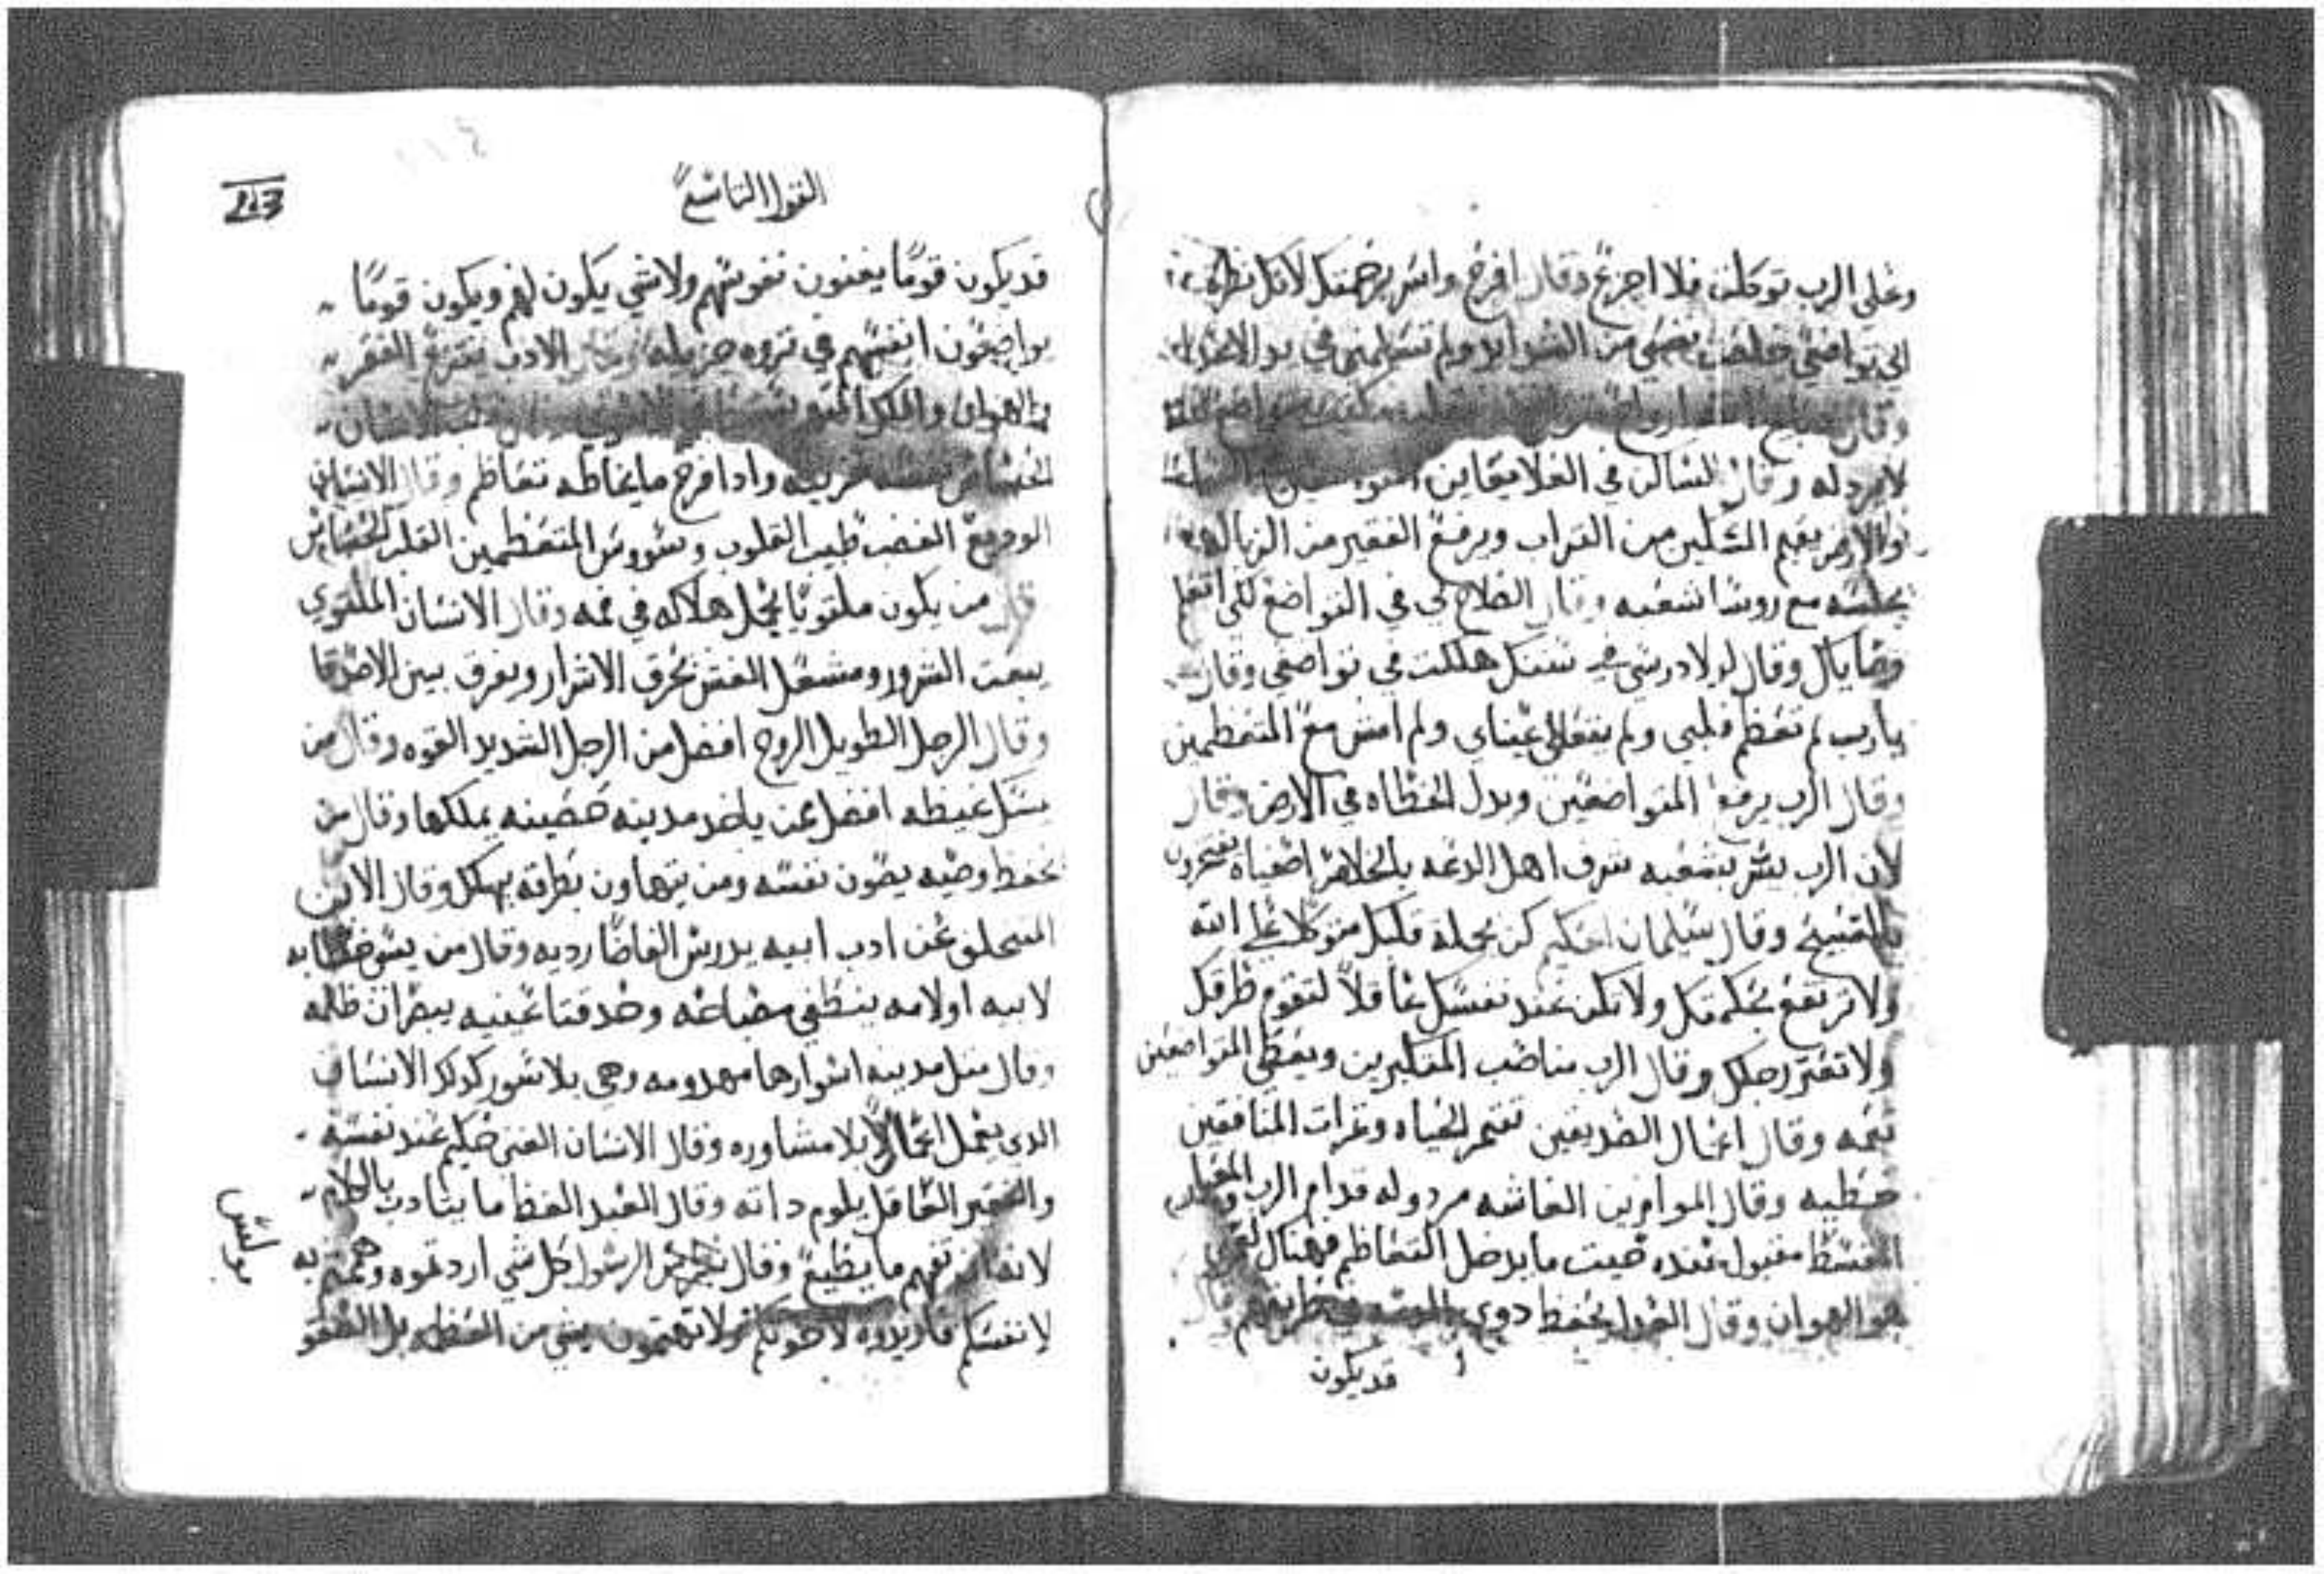 وعلى الرب توكلت فلا اجزع وقال افرح واسر برحمتك لانك نظرت
الى تواضعي خلصت نفسي من الشدايد ولم تسلمني في يد الاعدا
وقال
لا يرد له وقال الساكن في العلا يعاين
والارض يقيم المسكين من التراب ويرفع الفقير من الزباله
يجلسه مع روسا شعبه وقال الصلاح لي في التواضع لكي اتعلم
وصاياك وقال لولا درسي في سننك هلكت في تواضعي وقال
يارب لم تعظم قلبي ولم تتعالى عيناي ولم امش مع المتعظمين
وقال الرب يرفع المتواضعين ويدل الخطاه في الارض وقال
لان الرب يسر بشعبه شرف اهل الدعه بالخلاص اصفياه يفتخرون
بالتسبيح وقال سليمان الحكيم كن بجملة قلبك متوكلا على الله
ولا ترتفع بحكمتك ولا تكن عند نفسك عاقلا لتقوم طرقك
ولا تعتر رجلك وقال الرب مناصب المتكبرين ويعطي المتواضعين
نعمه وقال اعمال الصديقين تتمر الحياه وتمرات المنافقين
خطيه وقال الموازين الغاشه مردوله قدام الرب والمعيار
المقسط مقبول عنده حيت ما يدخل التعاظم فهناك
هو الهوان وقال العدل يحفظ دوي
قد يكون
القول التاسع
113
قد يكون قوما يغنون نفوسهم ولا شي يكون لهم ويكون قوما
يواضعون انفسهم في تروه جزيله وقال الادب يقرع الفقر
والهوان
وادا فرح ما يخاطه تتعاظم وقال الانسان
الوديع الغضب طبيب القلوب وسووس المتعظمين القلب الحساس
قال من يكون ملتويا يحمل هلاكه في فمه وقال الانسان الملتوي
يبعت الشرور ومشعل الغش يحرق الاشرار ويفرق بين الاصدقا
وقال الرجل الطويل الروح افضل من الرجل الشديد القوه وقال من
يمسك غيظه افضل ممن ياخد مدينه حصينه يملكها وقال من
يحفظ وصيه يصون نفسه ومن يتهاون بطرقه يهلك وقال الابن
المتخلف عن ادب ابيه يدرس الفاضا رديه وقال من يسو خطابه
لابيه او لامه ينطفي مصباحه وحدقتا عينيه يبصران ظلمه
وقال متل مدينه اسوارها مهدومه وهي بلا سور كدلك الانسان
الدي يعمل اعمالا بلا مشاوره وقال الانسان الغني حكيم عند نفسه
والفقير العاقل يلوم داته وقال العبد الفظ ما يتادب بالكلام
لانه ان تفهم ما يطيع وقال بولس الرسول كل شي اردتموه وهممتم به
لانفسكم فاريدوه لاخوتكم ولا تهتمون بشي من العظمه بل اتضعو
بولس